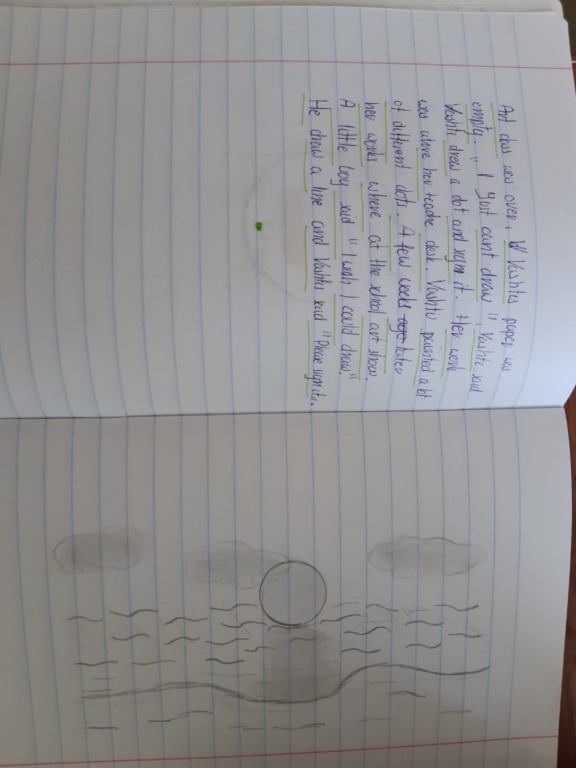 Art class was over, W Vashtis paper was
empty. " I just cant draw ", Vashti said
Vashti drew a dot and sign it. Her work
was above her teache desk. Vashti painted a lot
of different dots. A few weeks ago later
her works where at the school art show.
A little boy said " I wish I could draw."
He drew a line and Vashti said "Please sign it".